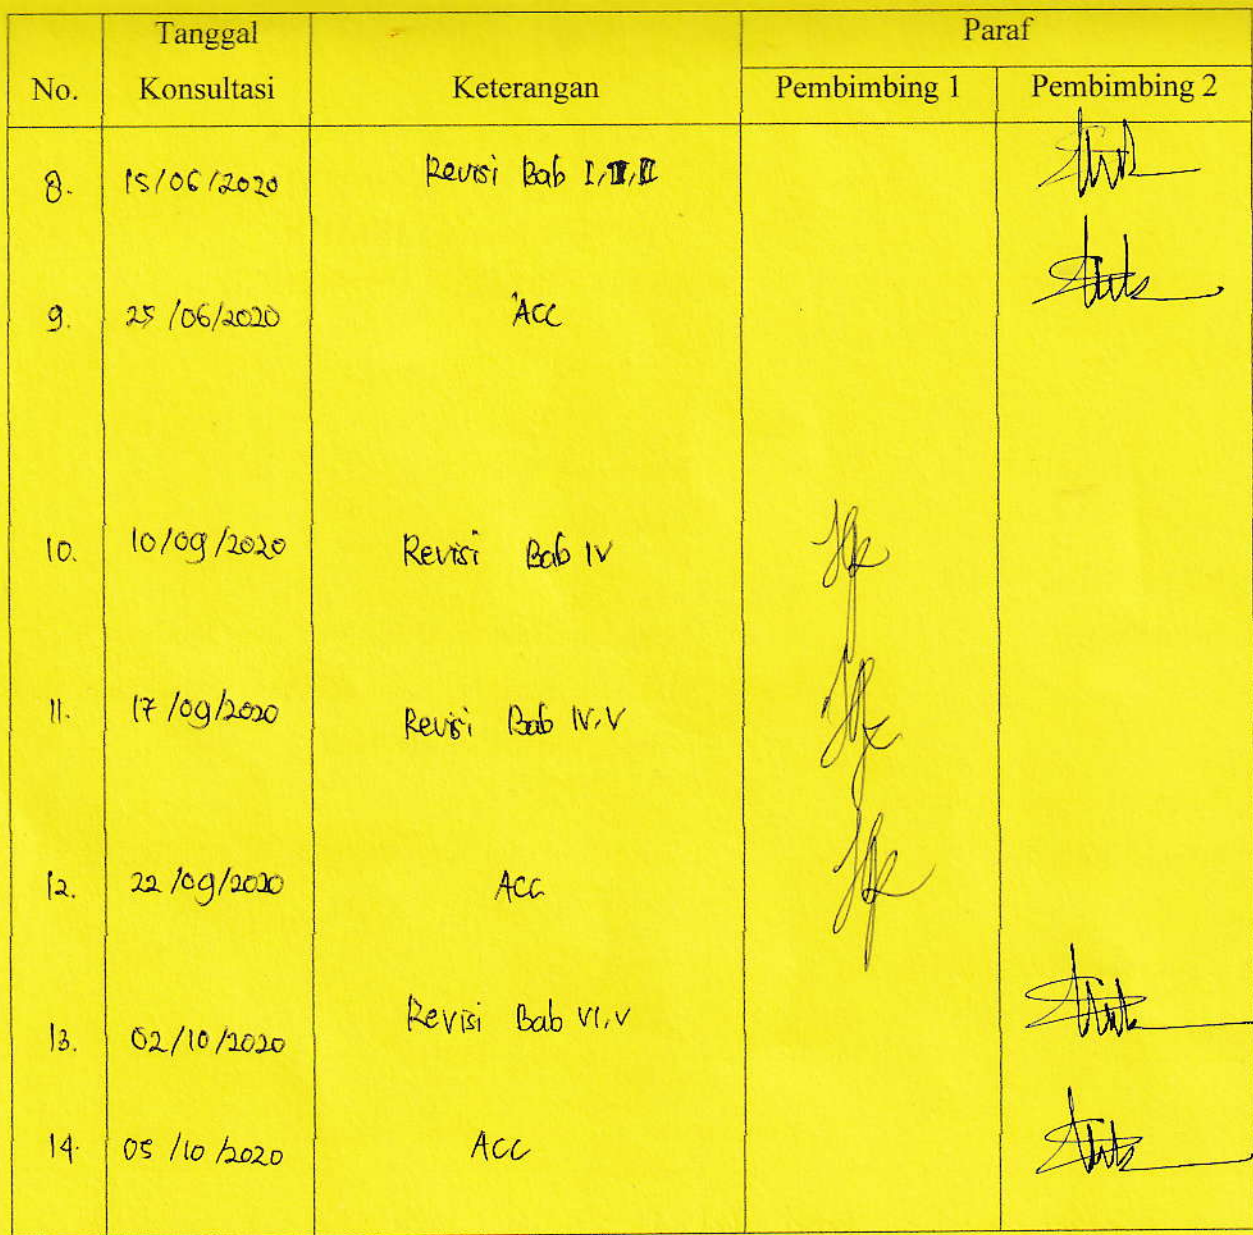 No. Tanggal Konsultasi Keterangan Paraf
Pembimbing 1 Pembimbing 2
8. 15/06/2020 Revisi Bab I,
9. 25/06/2020 ACC
10. 10/09/2020 Revisi Bab IV
11. 17/09/2020 Revisi Bab IV,V
12. 22/09/2020 ACC
13. 02/10/2020 Revisi Bab VI,V
14. 05/10/2020 ACC